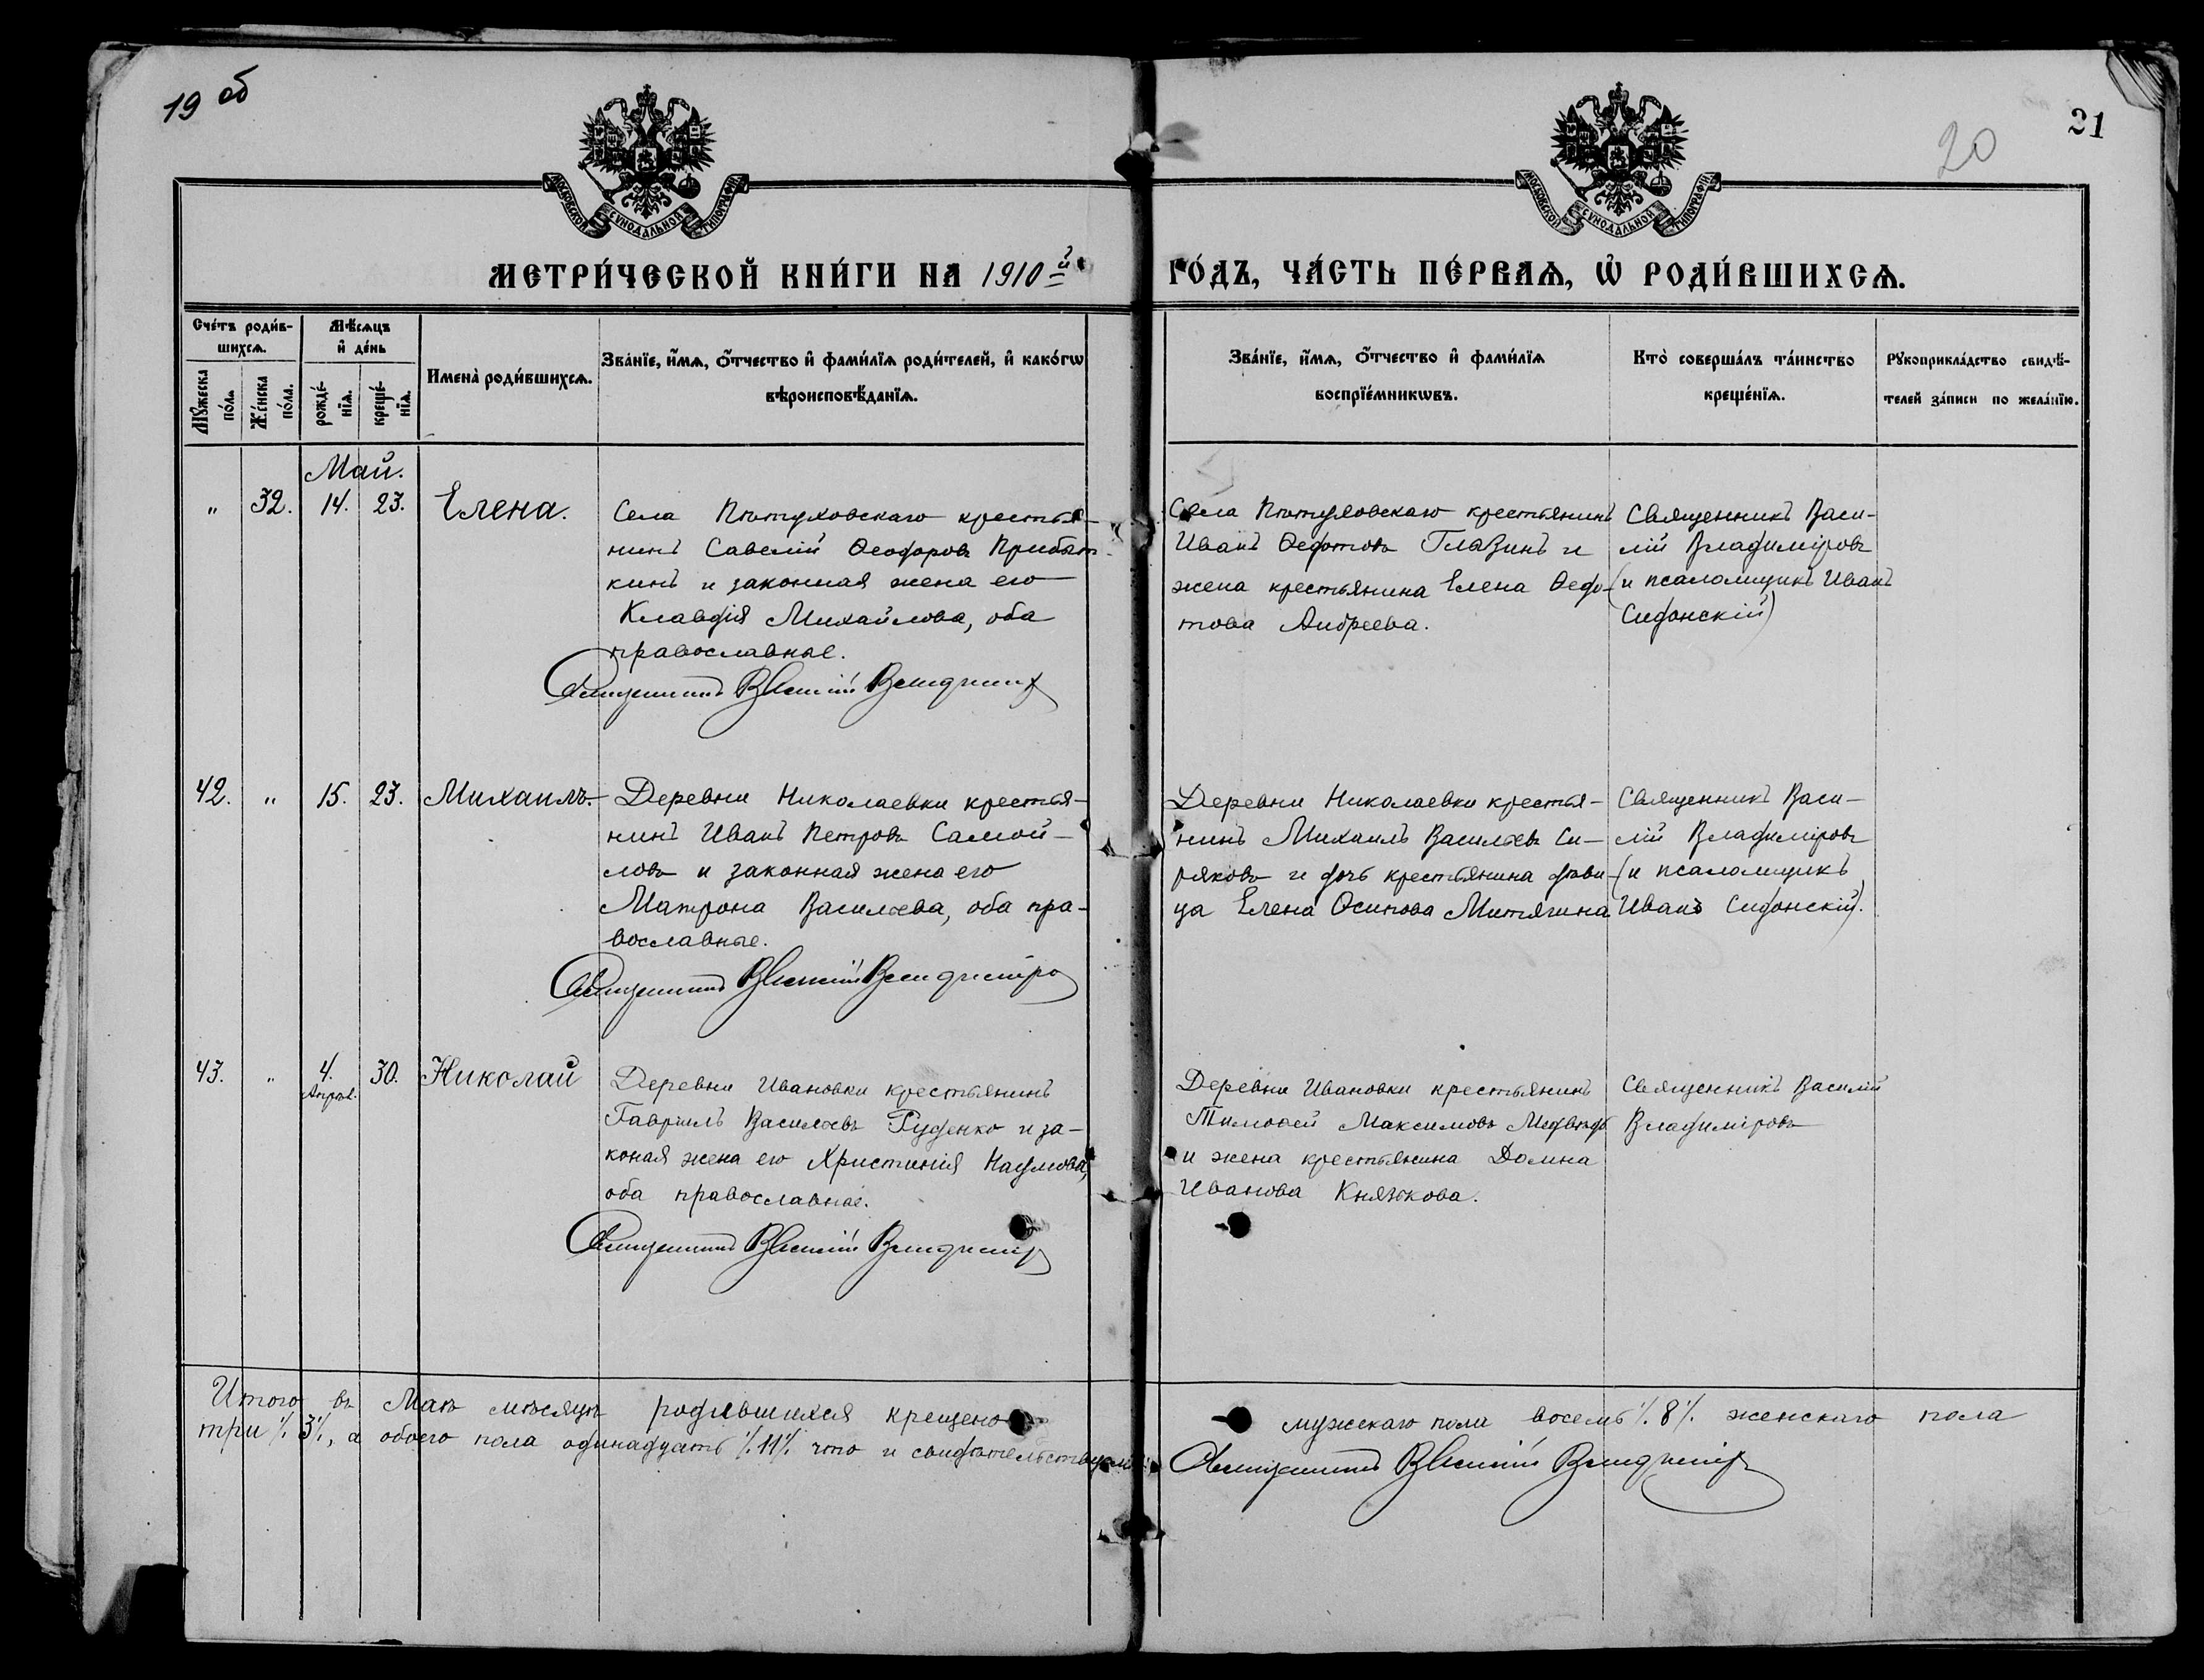 19 об
20
21
МОСКОВСКОЙ СѴНОДАЛЬНОЙ ТИПОГРАФІИ
МОСКОВСКОЙ СѴНОДАЛЬНОЙ ТИПОГРАФІИ
МЕТРИ́ЧЕСКОЙ КНИ́ГИ НА 1910й ГО́ДЪ, ЧА́СТЬ ПЕ́РВАѦ, Ѡ҆ РОДИ́ВШИХСѦ.
Сче́тъ роди́в-
шихсѧ.
Мѣ́сѧцъ
и҆ де́нь
Мꙋ́жеска
по́ла.
Же́нска
по́ла.
рожде́-
нїѧ.
креще́-
нїѧ.
Имена̀ роди́вшихсѧ.
Зва́нїе, и҆́мѧ, ѻ҆́тчество и҆ фами́лїѧ роди́телей, и҆ како́гѡ
вѣроисповѣ́данїѧ.
Зва́нїе, и҆́мѧ, ѻ҆́тчество и҆ фами́лїѧ
воспрїе́мникѡвъ.
Кто̀ соверша́лъ та́инство
креще́нїѧ.
Рꙋкоприкла́дство свидѣ́-
телей за́писи по жела́нїю.
Май.
„ 32. 14. 23. Елена.
Села Пѣтуховскаго крестья-
нинъ Савелій Ѳеодоровъ Прибыт-
кинъ и законная жена его
Клавдія Михайлова, оба
православные.
Священникъ Василій Владиміровъ
Села Пѣтуховскаго крестьянинъ
Иванъ Ѳедотовъ Глазинъ и
жена крестьянина Елена Ѳедо-
това Андреева.
Священникъ Васи-
лій Владиміровъ
(и псаломщикъ Иванъ
Сидонскій)
42. „ 15. 23. Михаилъ.
Деревни Николаевки крестья-
нинъ Иванъ Петровъ Самой-
ловъ и законная жена его
Матрона Васильева, оба пра-
вославные.
Священникъ Василій Владиміровъ
Деревни Николаевки крестья-
нинъ Михаилъ Васильевъ Си-
ряковъ и дочь крестьянина дѣви-
ца Елена Осипова Митягина
Священникъ Васи-
лій Владиміровъ
(и псаломщикъ
Иванъ Сидонскій).
43. „ 4. 30. Николай
Апрѣл.
Деревни Ивановки крестьянинъ
Гавріилъ Васильевъ Руденко и за-
коная жена его Христинія Наумова,
оба православные.
Священникъ Василій Владиміровъ
Деревни Ивановки крестьянинъ
Тимоѳей Максимовъ Медвѣдь
и жена крестьянина Домна
Иванова Князькова.
Священникъ Василій
Владиміровъ
Итого въ Маѣ мѣсяцѣ родившихся крещено мужскаго пола восемь ·/. 8 ·/. женскаго пола
три ·/. 3 ·/., а обоего пола одинадцать ·/. 11 ·/. что и свидѣтельствуемъ: Священникъ Василій Владиміровъ